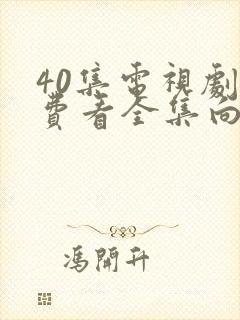 40集電視劇
費看全集向
馮開升